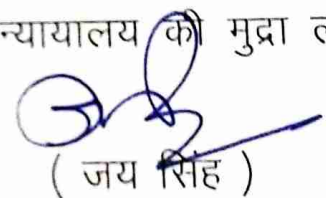 न्यायालय की मुद्रा
( जय सिंह )